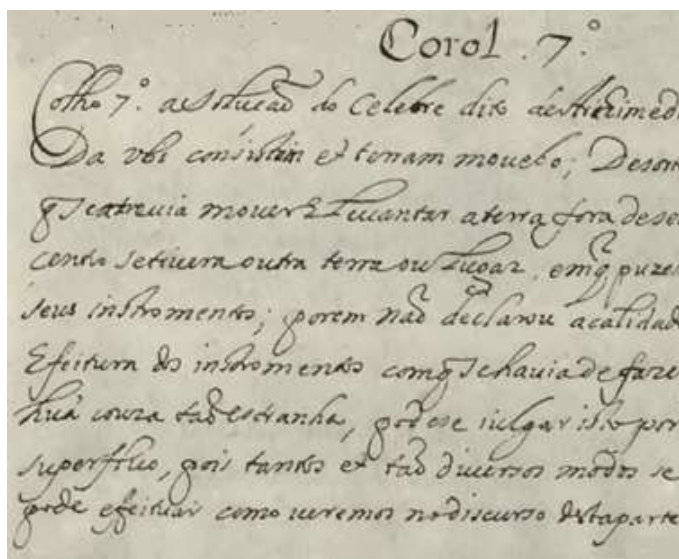 Corol. 7.º
Colho 7.º a Solucaõ do Celebre dito de Archimed
Da vbi consistam et terram mouebo; Desor
q̃ Se atreuia mouer E Leuantar a terra fora de seu
centro se tiuera outra terra ou Lugar em q̃ puze
seus instromentos; porem naõ declarou a calidad
E feitura dos instromentos com q̃ Se hauia de faze
huã couza taõ estranha, pode se iulgar isto por
superfluo, pois tantos et taõ diuersos modos se
pode efeituar como ueremos no discurso desta parte